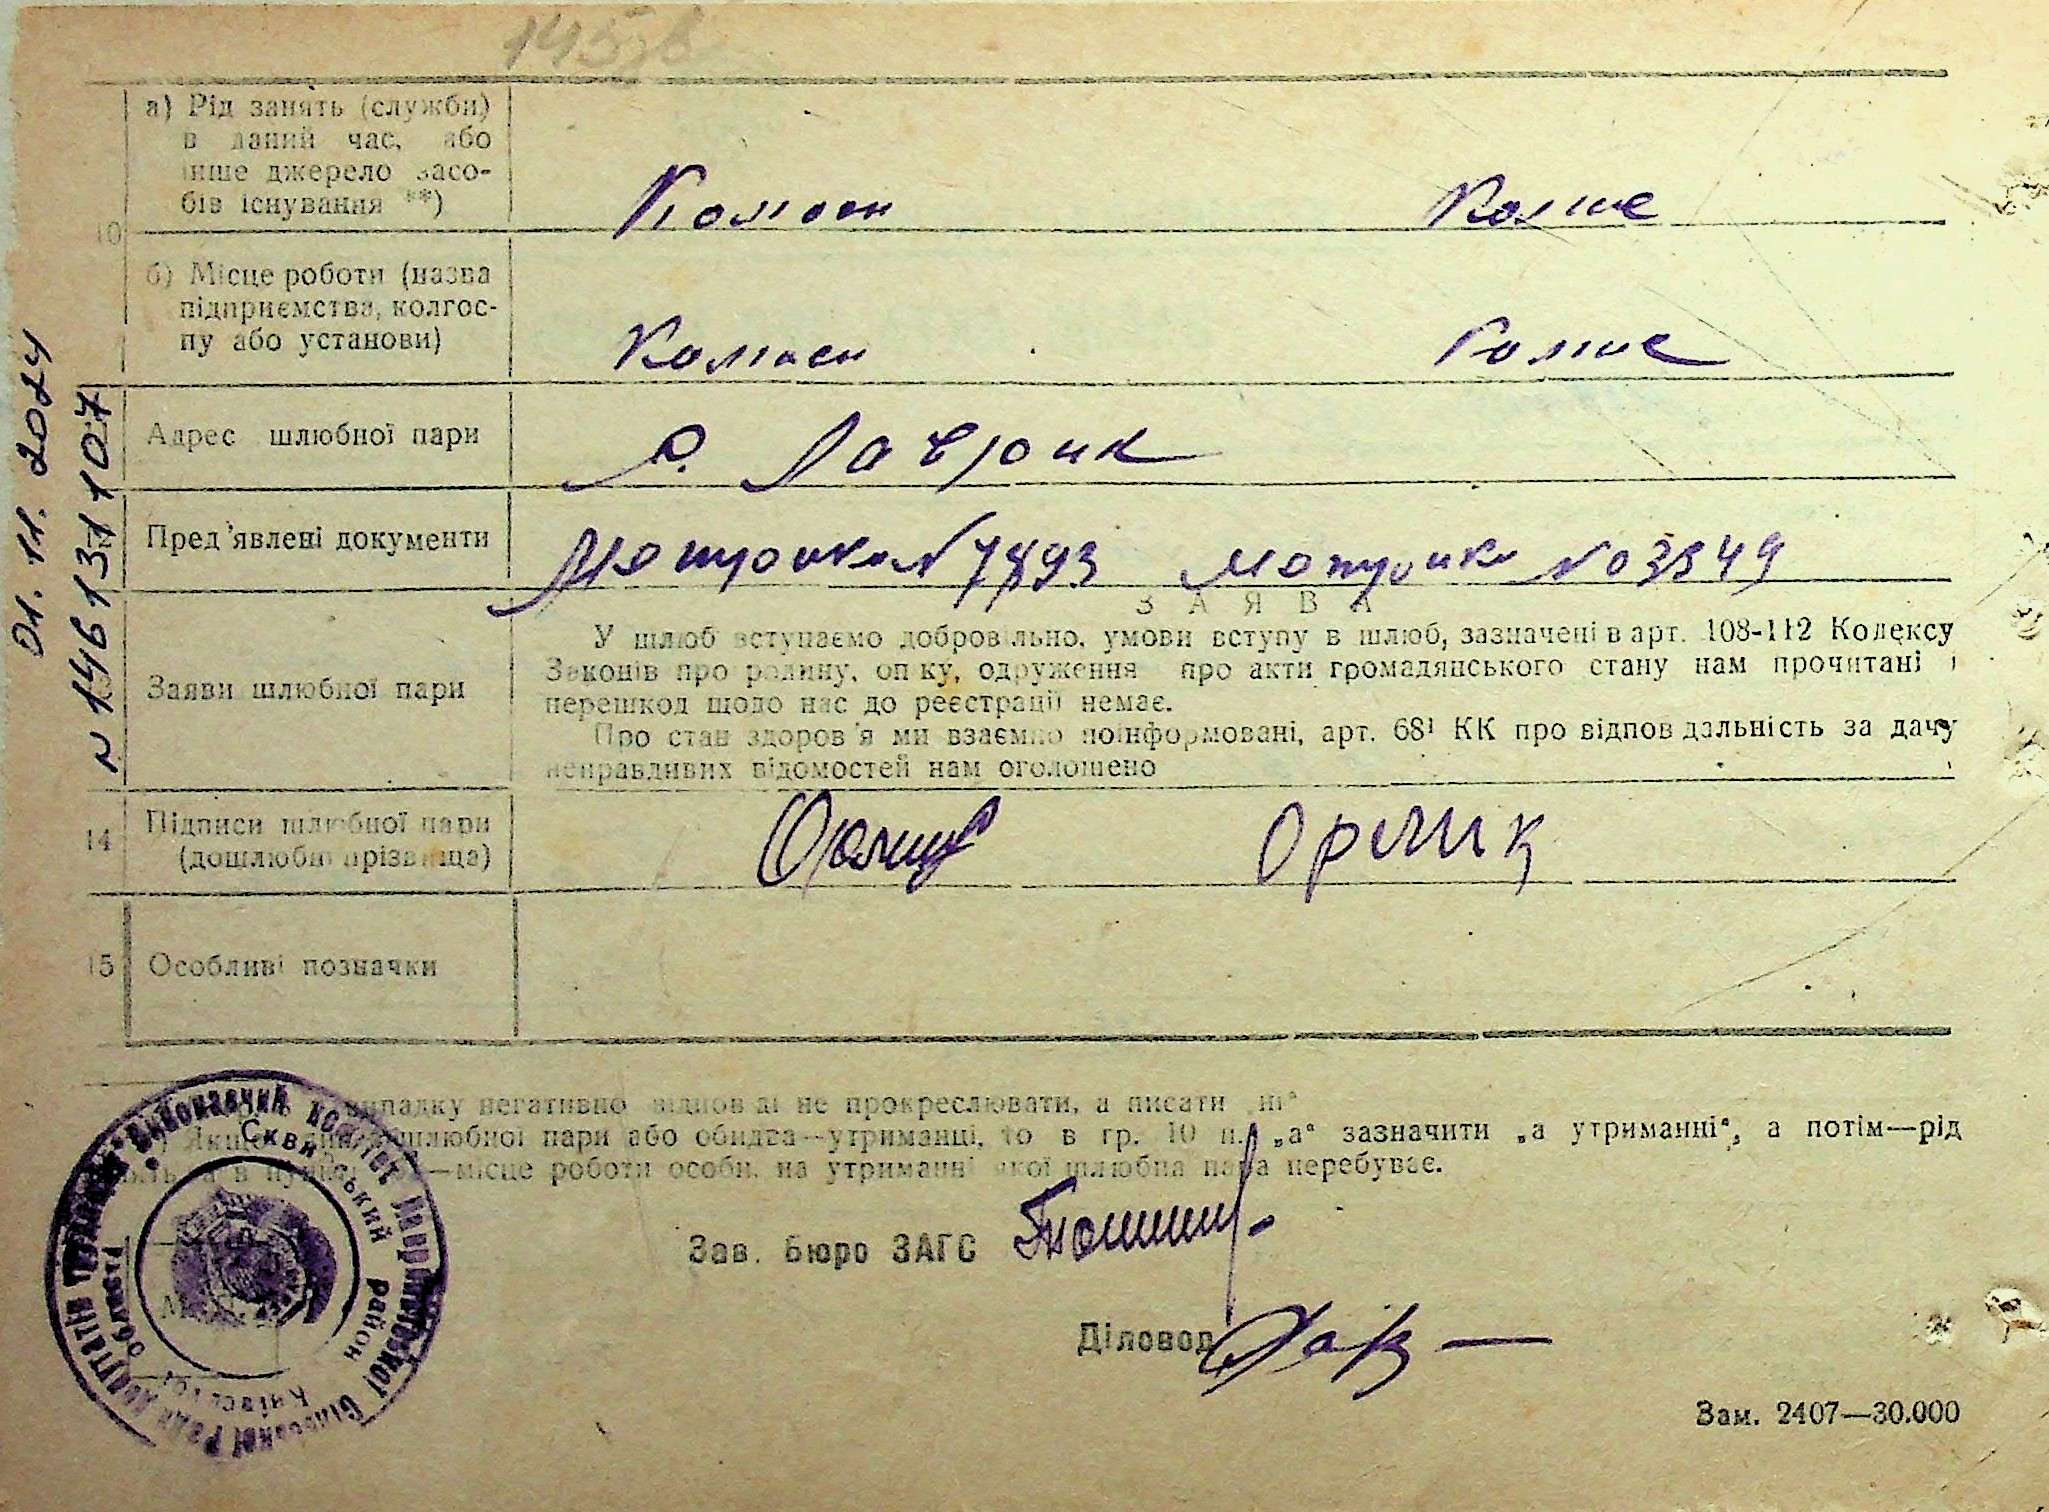 145зв
а) Рід занять (служби)
в даний час, або
інше джерело засо-
бів існування **)
10
б) Місце роботи (назва
підприємства, колгос-
пу або установи)
Адрес шлюбної пари
с. Лаврик
Пред'явлені документи
N 7893 N 03849
З А Я В А
У шлюб вступаємо добровільно, умови вступу в шлюб, зазначені в арт. 108-112 Кодексу
Законів про родину, опіку, одруження про акти громадянського стану нам прочитані і
перешкод щодо нас до реєстрації немає.
Заяви шлюбної пари
Про стан здоров'я ми взаємно поінформовані, арт. 68¹ КК про відповідальність за дачу
неправдивих відомостей нам оголошено
14
Підписи шлюбної пари
(дошлюбні прізвища)
Орлик
15 Особливі позначки
випадку негативної відповіді не прокреслювати, а писати „ні“
Якщо шлюбної пари або обидва—утриманці, то в гр. 10 п. „а“ зазначити „а утриманні“, а потім—рід
—місце роботи особи, на утриманні якої шлюбна пара перебуває.
Зав. Бюро ЗАГС
Діловод
Зам. 2407—30.000
01. 11. 2024
N 146 131 107
Виконавчий комітет Лавриківської Сільської Ради депутатів трудящих
Сквирський район
Київської області